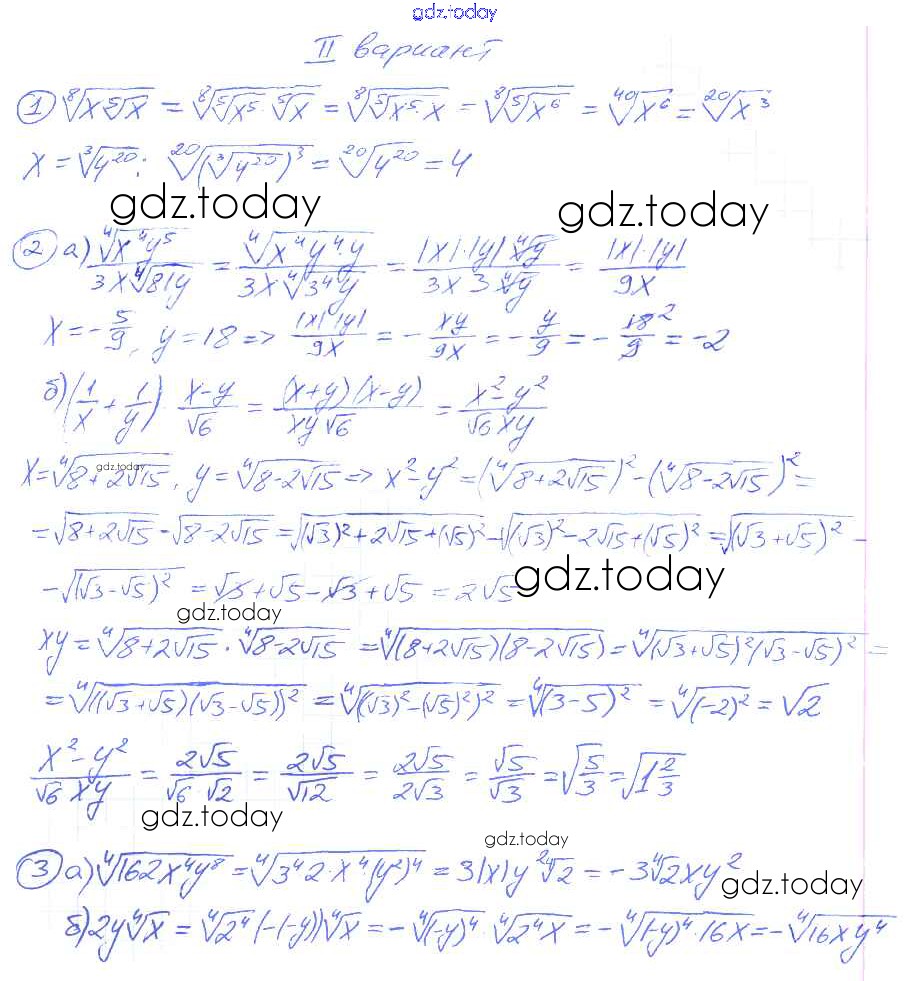 gdz.today
II вариант
① ⁸√(x⁵√x) = ⁸√(⁵√x⁵ · ⁵√x) = ⁸√(⁵√(x⁵·x)) = ⁸√(⁵√x⁶) = ⁴⁰√x⁶ = ²⁰√x³
x = ³√4²⁰ ; ²⁰√((³√4²⁰)³) = ²⁰√4²⁰ = 4
gdz.today gdz.today
② а) ⁴√(x⁴y⁵) / (3x ⁴√(81y)) = ⁴√(x⁴y⁴·y) / (3x·⁴√(3⁴y)) = |x|·|y| ⁴√y / (3x 3 ⁴√y) = |x|·|y| / 9x
x = -5/9, y = 18 => |x|·|y| / 9x = - xy/9x = - y/9 = - 18²/9 = -2
б) (1/x + 1/y) (x-y)/√6 = (x+y)(x-y) / (xy√6) = (x²-y²) / (√6 xy)
x = ⁴√(8+2√15), y = ⁴√(8-2√15) => x²-y² = (⁴√(8+2√15))² - (⁴√(8-2√15))² =
gdz.today
= √(8+2√15) - √(8-2√15) = √((√3)²+2√15+(√5)²) - √((√3)²-2√15+(√5)²) = √((√3+√5)²) -
- √((√3-√5)²) = √3+√5-√3+√5 = 2√5
gdz.today
gdz.today
xy = ⁴√(8+2√15) · ⁴√(8-2√15) = ⁴√((8+2√15)(8-2√15)) = ⁴√((√3+√5)²(√3-√5)²) =
= ⁴√(((√3+√5)(√3-√5))²) = ⁴√(((√3)²-(√5)²)²) = ⁴√((3-5)²) = ⁴√((-2)²) = √2
(x²-y²) / (√6 xy) = 2√5 / (√6·√2) = 2√5/√12 = 2√5/2√3 = √5/√3 = √(5/3) = √(1 2/3)
gdz.today
gdz.today
③ а) ⁴√(162x⁴y⁸) = ⁴√(3⁴·2·x⁴(y²)⁴) = 3|x|y² ⁴√2 = -3⁴√2xy²
gdz.today
б) 2y⁴√x = ⁴√2⁴ (-(-y))⁴√x = -⁴√((-y)⁴) · ⁴√(2⁴x) = -⁴√((-y)⁴·16x) = -⁴√(16xy⁴)